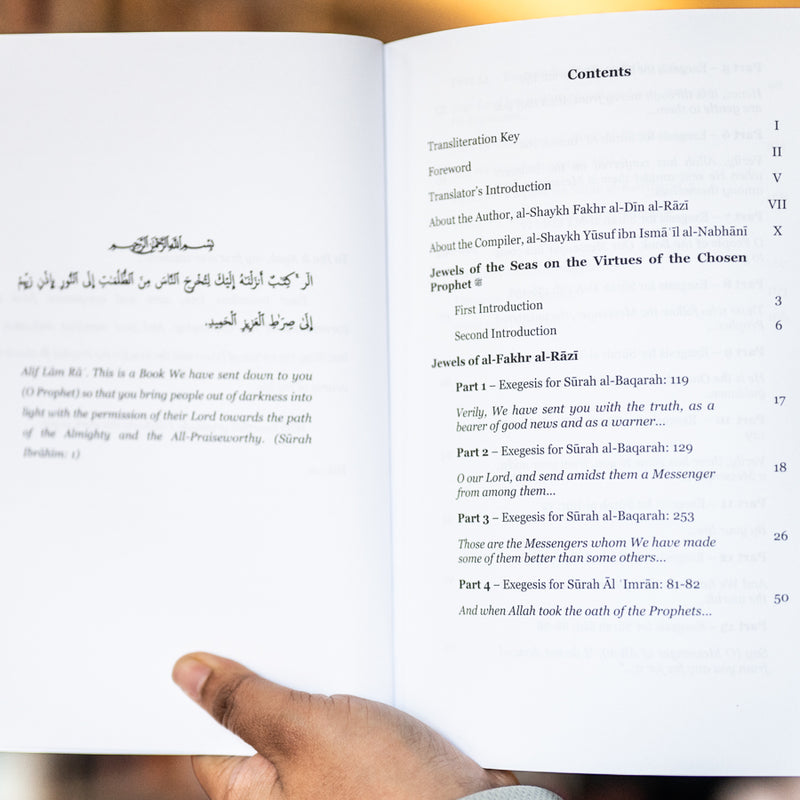 بسم الله الرحمن الرحيم
الر ۚ كِتَٰبٌ أَنزَلْنَٰهُ إِلَيْكَ لِتُخْرِجَ ٱلنَّاسَ مِنَ ٱلظُّلُمَٰتِ إِلَى ٱلنُّورِ بِإِذْنِ رَبِّهِمْ
إِلَىٰ صِرَٰطِ ٱلْعَزِيزِ ٱلْحَمِيدِ.
Alif Lām Rāʾ. This is a Book We have sent down to you
(O Prophet) so that you bring people out of darkness into
light with the permission of their Lord towards the path
of the Almighty and the All-Praiseworthy. (Sūrah
Ibrāhim: 1)
Contents
Transliteration Key I
Foreword II
Translator's Introduction V
About the Author, al-Shaykh Fakhr al-Dīn al-Rāzī VII
About the Compiler, al-Shaykh Yūsuf ibn Ismāʿīl al-Nabhānī X
Jewels of the Seas on the Virtues of the Chosen
Prophet ﷺ
First Introduction 3
Second Introduction 6
Jewels of al-Fakhr al-Rāzī
Part 1 – Exegesis for Sūrah al-Baqarah: 119
Verily, We have sent you with the truth, as a 17
bearer of good news and as a warner...
Part 2 – Exegesis for Sūrah al-Baqarah: 129
O our Lord, and send amidst them a Messenger 18
from among them...
Part 3 – Exegesis for Sūrah al-Baqarah: 253
Those are the Messengers whom We have made 26
some of them better than some others...
Part 4 – Exegesis for Sūrah Āl ʿImrān: 81-82
And when Allah took the oath of the Prophets... 50